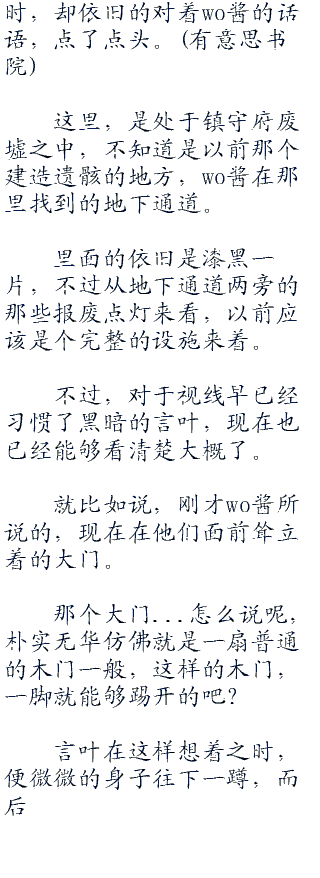 时，却依旧的对着wo酱的话
语，点了点头。(有意思书
院)
这里，是处于镇守府废
墟之中，不知道是以前那个
建造遗骸的地方，wo酱在那
里找到的地下通道。
里面的依旧是漆黑一
片，不过从地下通道两旁的
那些报废点灯来看，以前应
该是个完整的设施来着。
不过，对于视线早已经
习惯了黑暗的言叶，现在也
已经能够看清楚大概了。
就比如说，刚才wo酱所
说的，现在在他们面前耸立
着的大门。
那个大门...怎么说呢，
朴实无华仿佛就是一扇普通
的木门一般，这样的木门，
一脚就能够踢开的吧?
言叶在这样想着之时，
便微微的身子往下一蹲，而
后